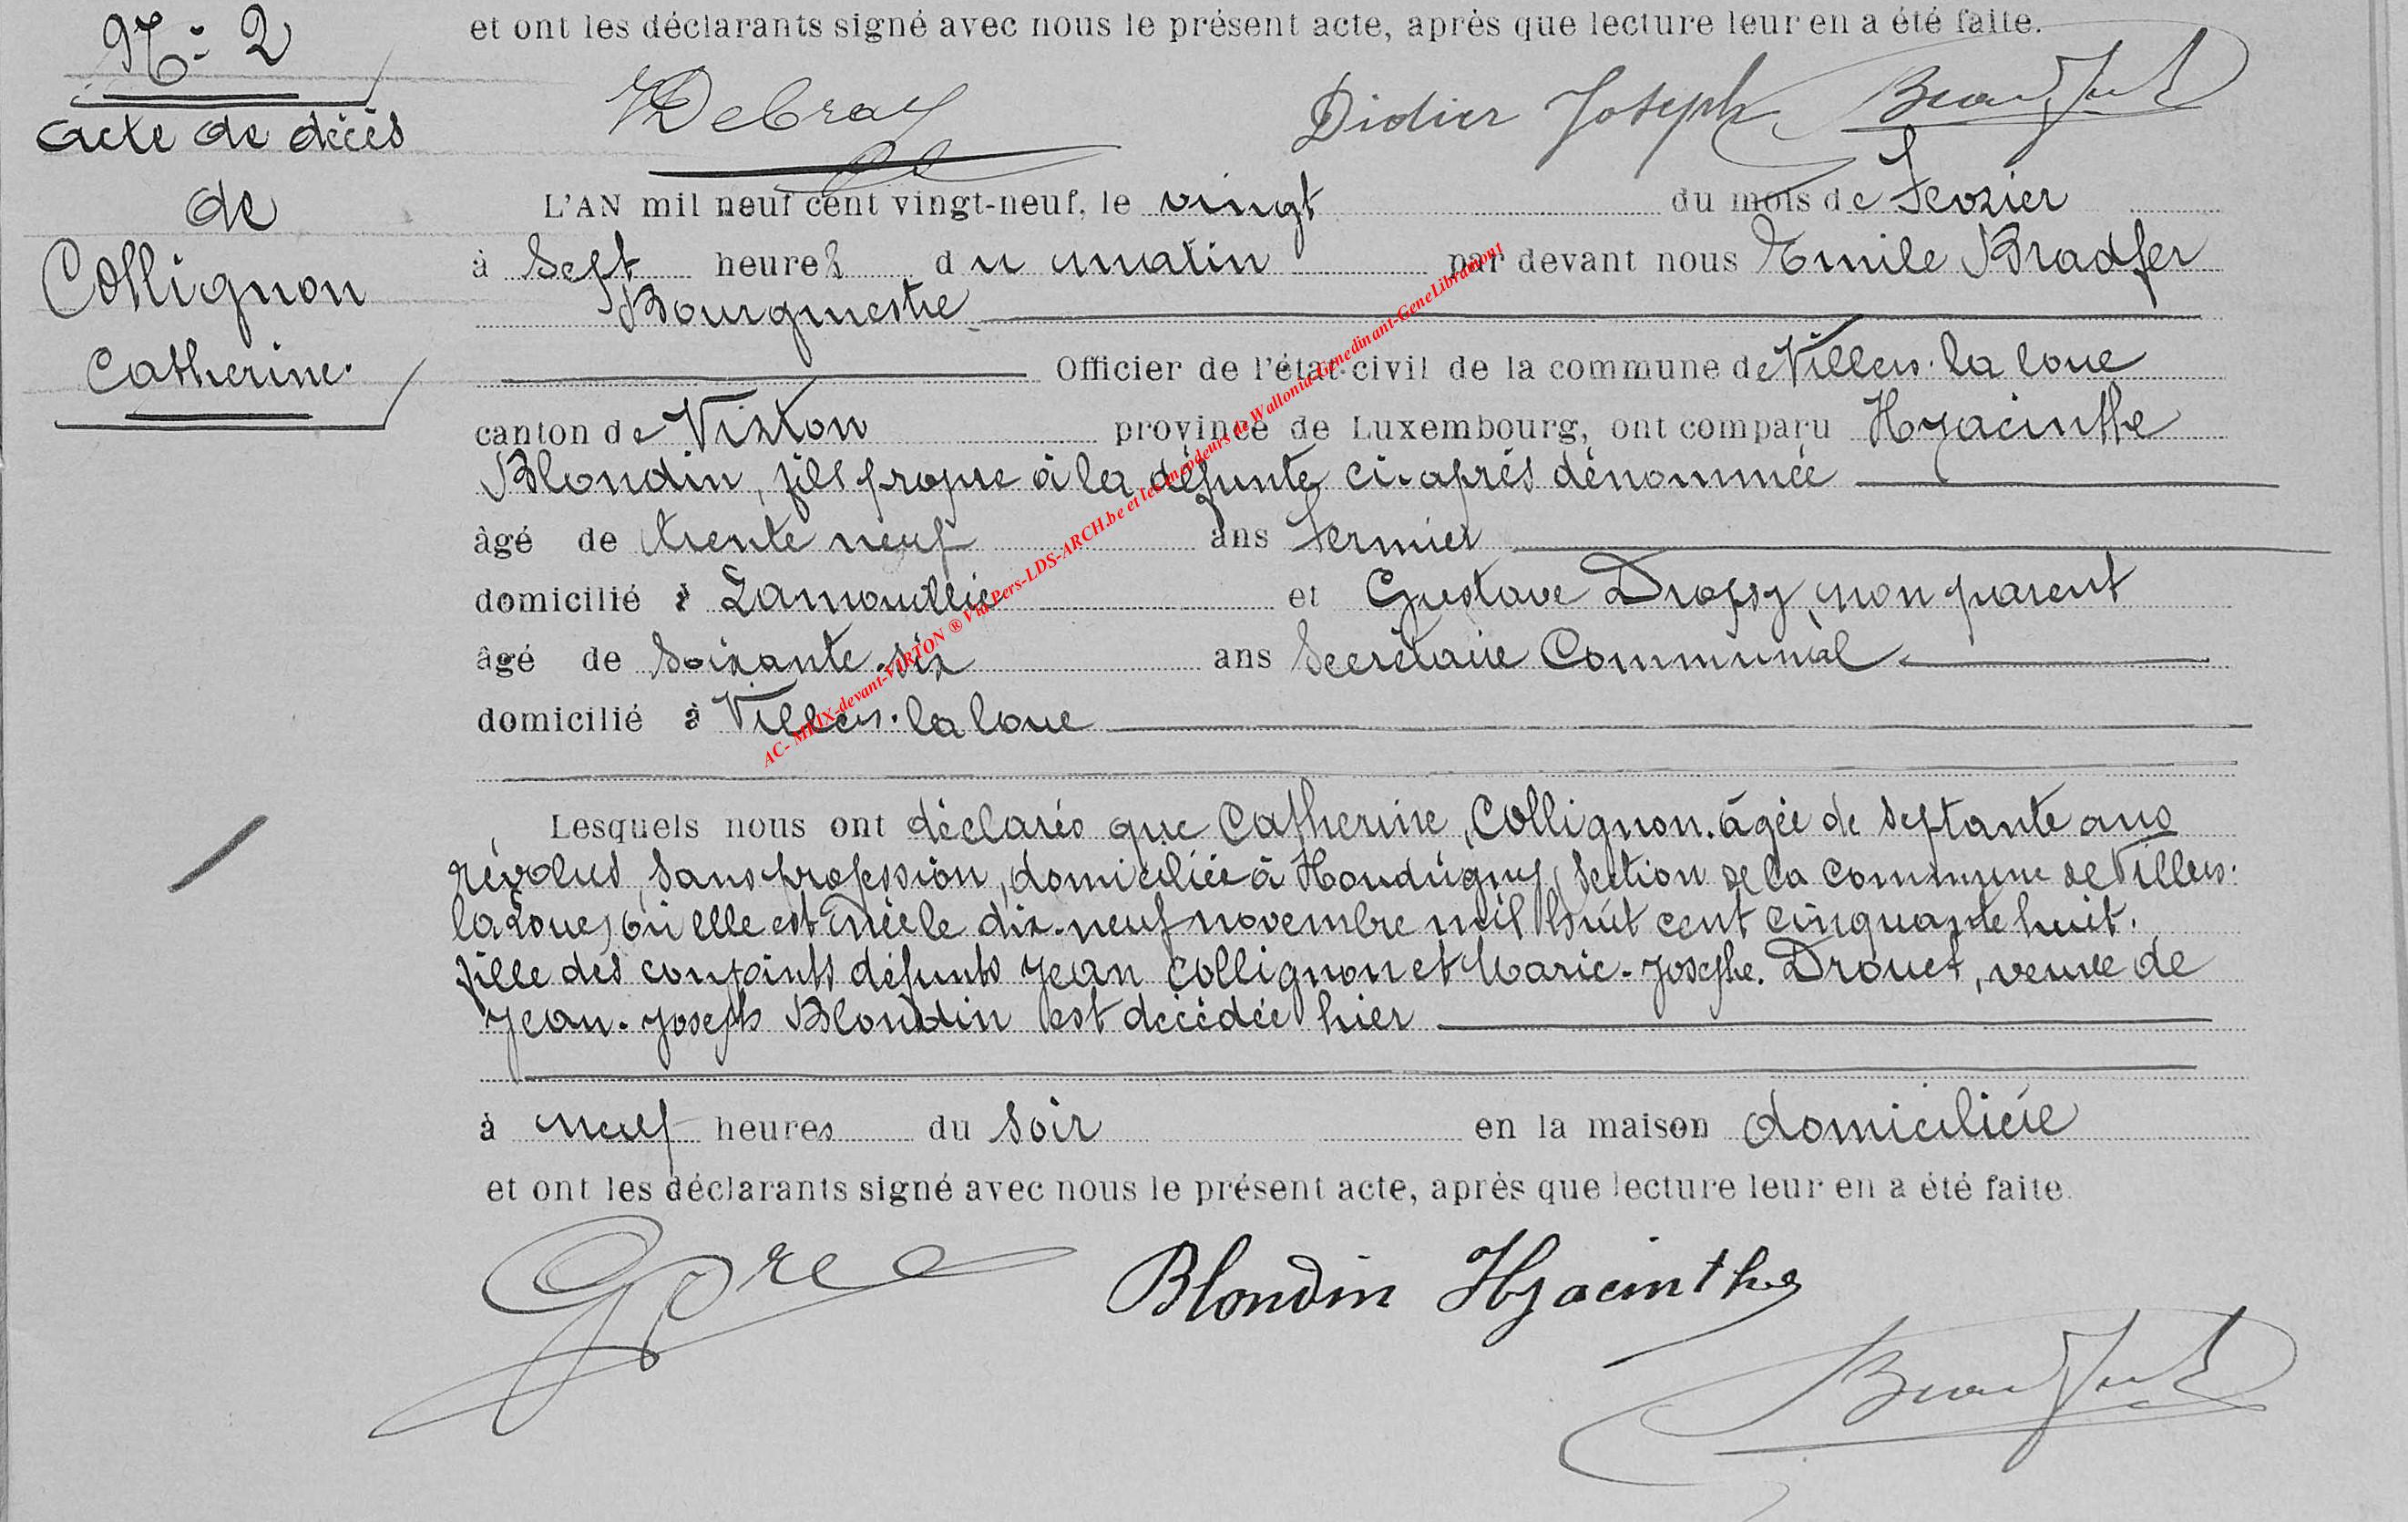 et ont les déclarants signé avec nous le présent acte, après que lecture leur en a été faite.
N: 2
Debray
Didier Joseph
Acte de décès
de
Collignon
Catherine.
L'AN mil neuf cent vingt-neuf, le vingt du mois de Fevrier
à Sept heures du matin par devant nous Emile Bradfer
Bourgmestre
Officier de l'état-civil de la commune de Villers-la loue
canton de Virton province de Luxembourg, ont comparu Hyacinthe
Blondin, fils propre à la défunte ci-après dénommée
âgé de trente neuf ans Fermier
domicilié à Lamouilly et Gustave Dropsy, non parent
âgé de Soixante-six ans Secrétaire Communal
domicilié à Villers-la loue
Lesquels nous ont déclarés que Catherine Collignon, âgée de septante ans
révolus, sans profession, domiciliée à Houdrigny, section de la commune de Villers-
la Loue, où elle est née le dix-neuf novembre mil huit cent cinquante huit.
fille des conjoints défunts Jean Collignon et Marie-Josephe. Drouet, veuve de
Jean-Joseph Blondin est décédée hier
à neuf heures du soir en la maison domiciliée
et ont les déclarants signé avec nous le présent acte, après que lecture leur en a été faite.
Blondin Hyacinthe
AC- MEIX-devant-VIRTON ® Via Pers-LDS-ARCH.be et les encodeurs de Wallonia-Genedinant-GeneLibramont